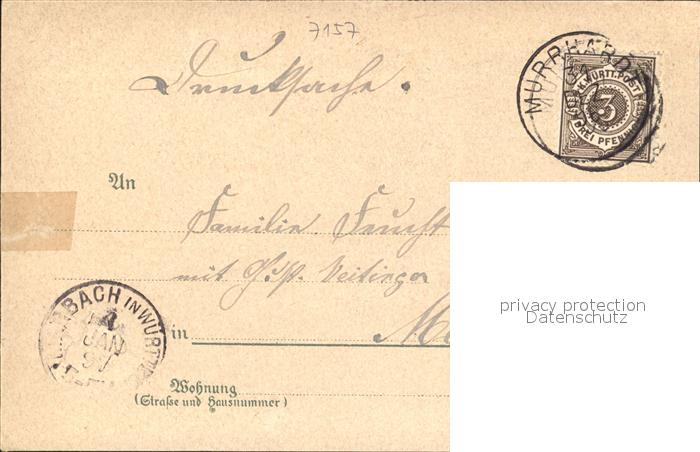 7157
Drucksache.
MURRHARDT
31
DEZ
K. WÜRTT. POST
3
DREI PFENNIG
An
Familie Feucht
mit Gust. Veitinger
privacy protection
Datenschutz
BACH IN WÜRTT
1
JAN
97
in
Wohnung
(Straße und Hausnummer)